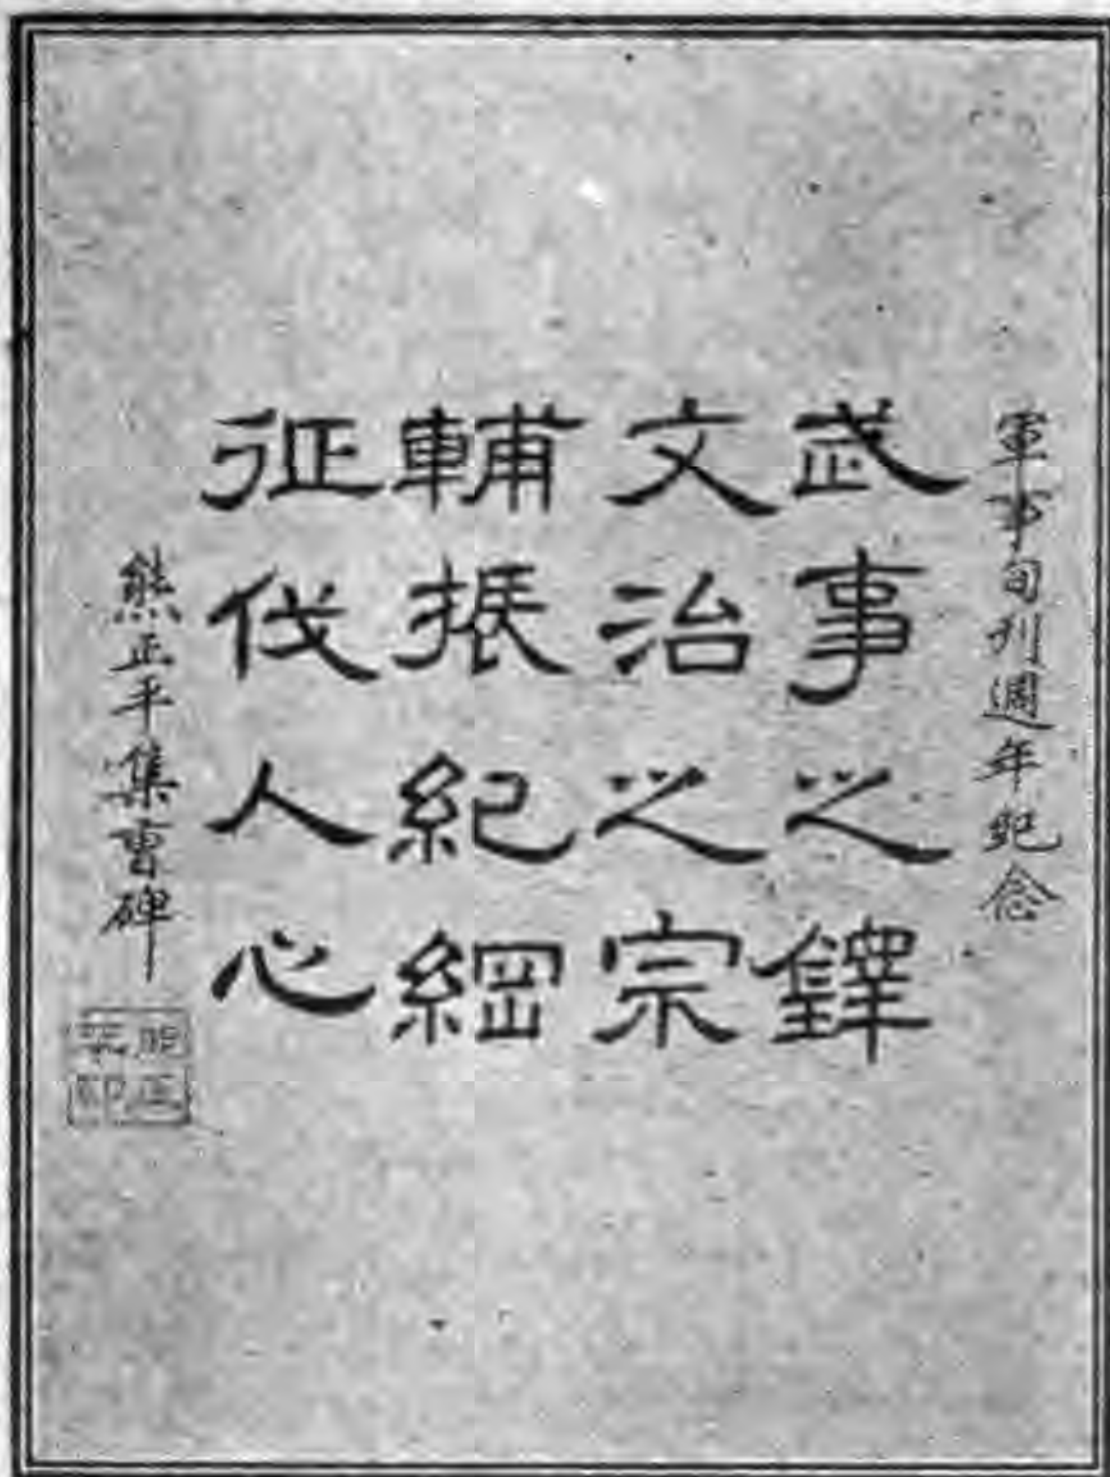 軍事旬刊週年紀念
武事之鐸
文治之宗
輔振紀綱
征伐人心
熊正平集曹碑